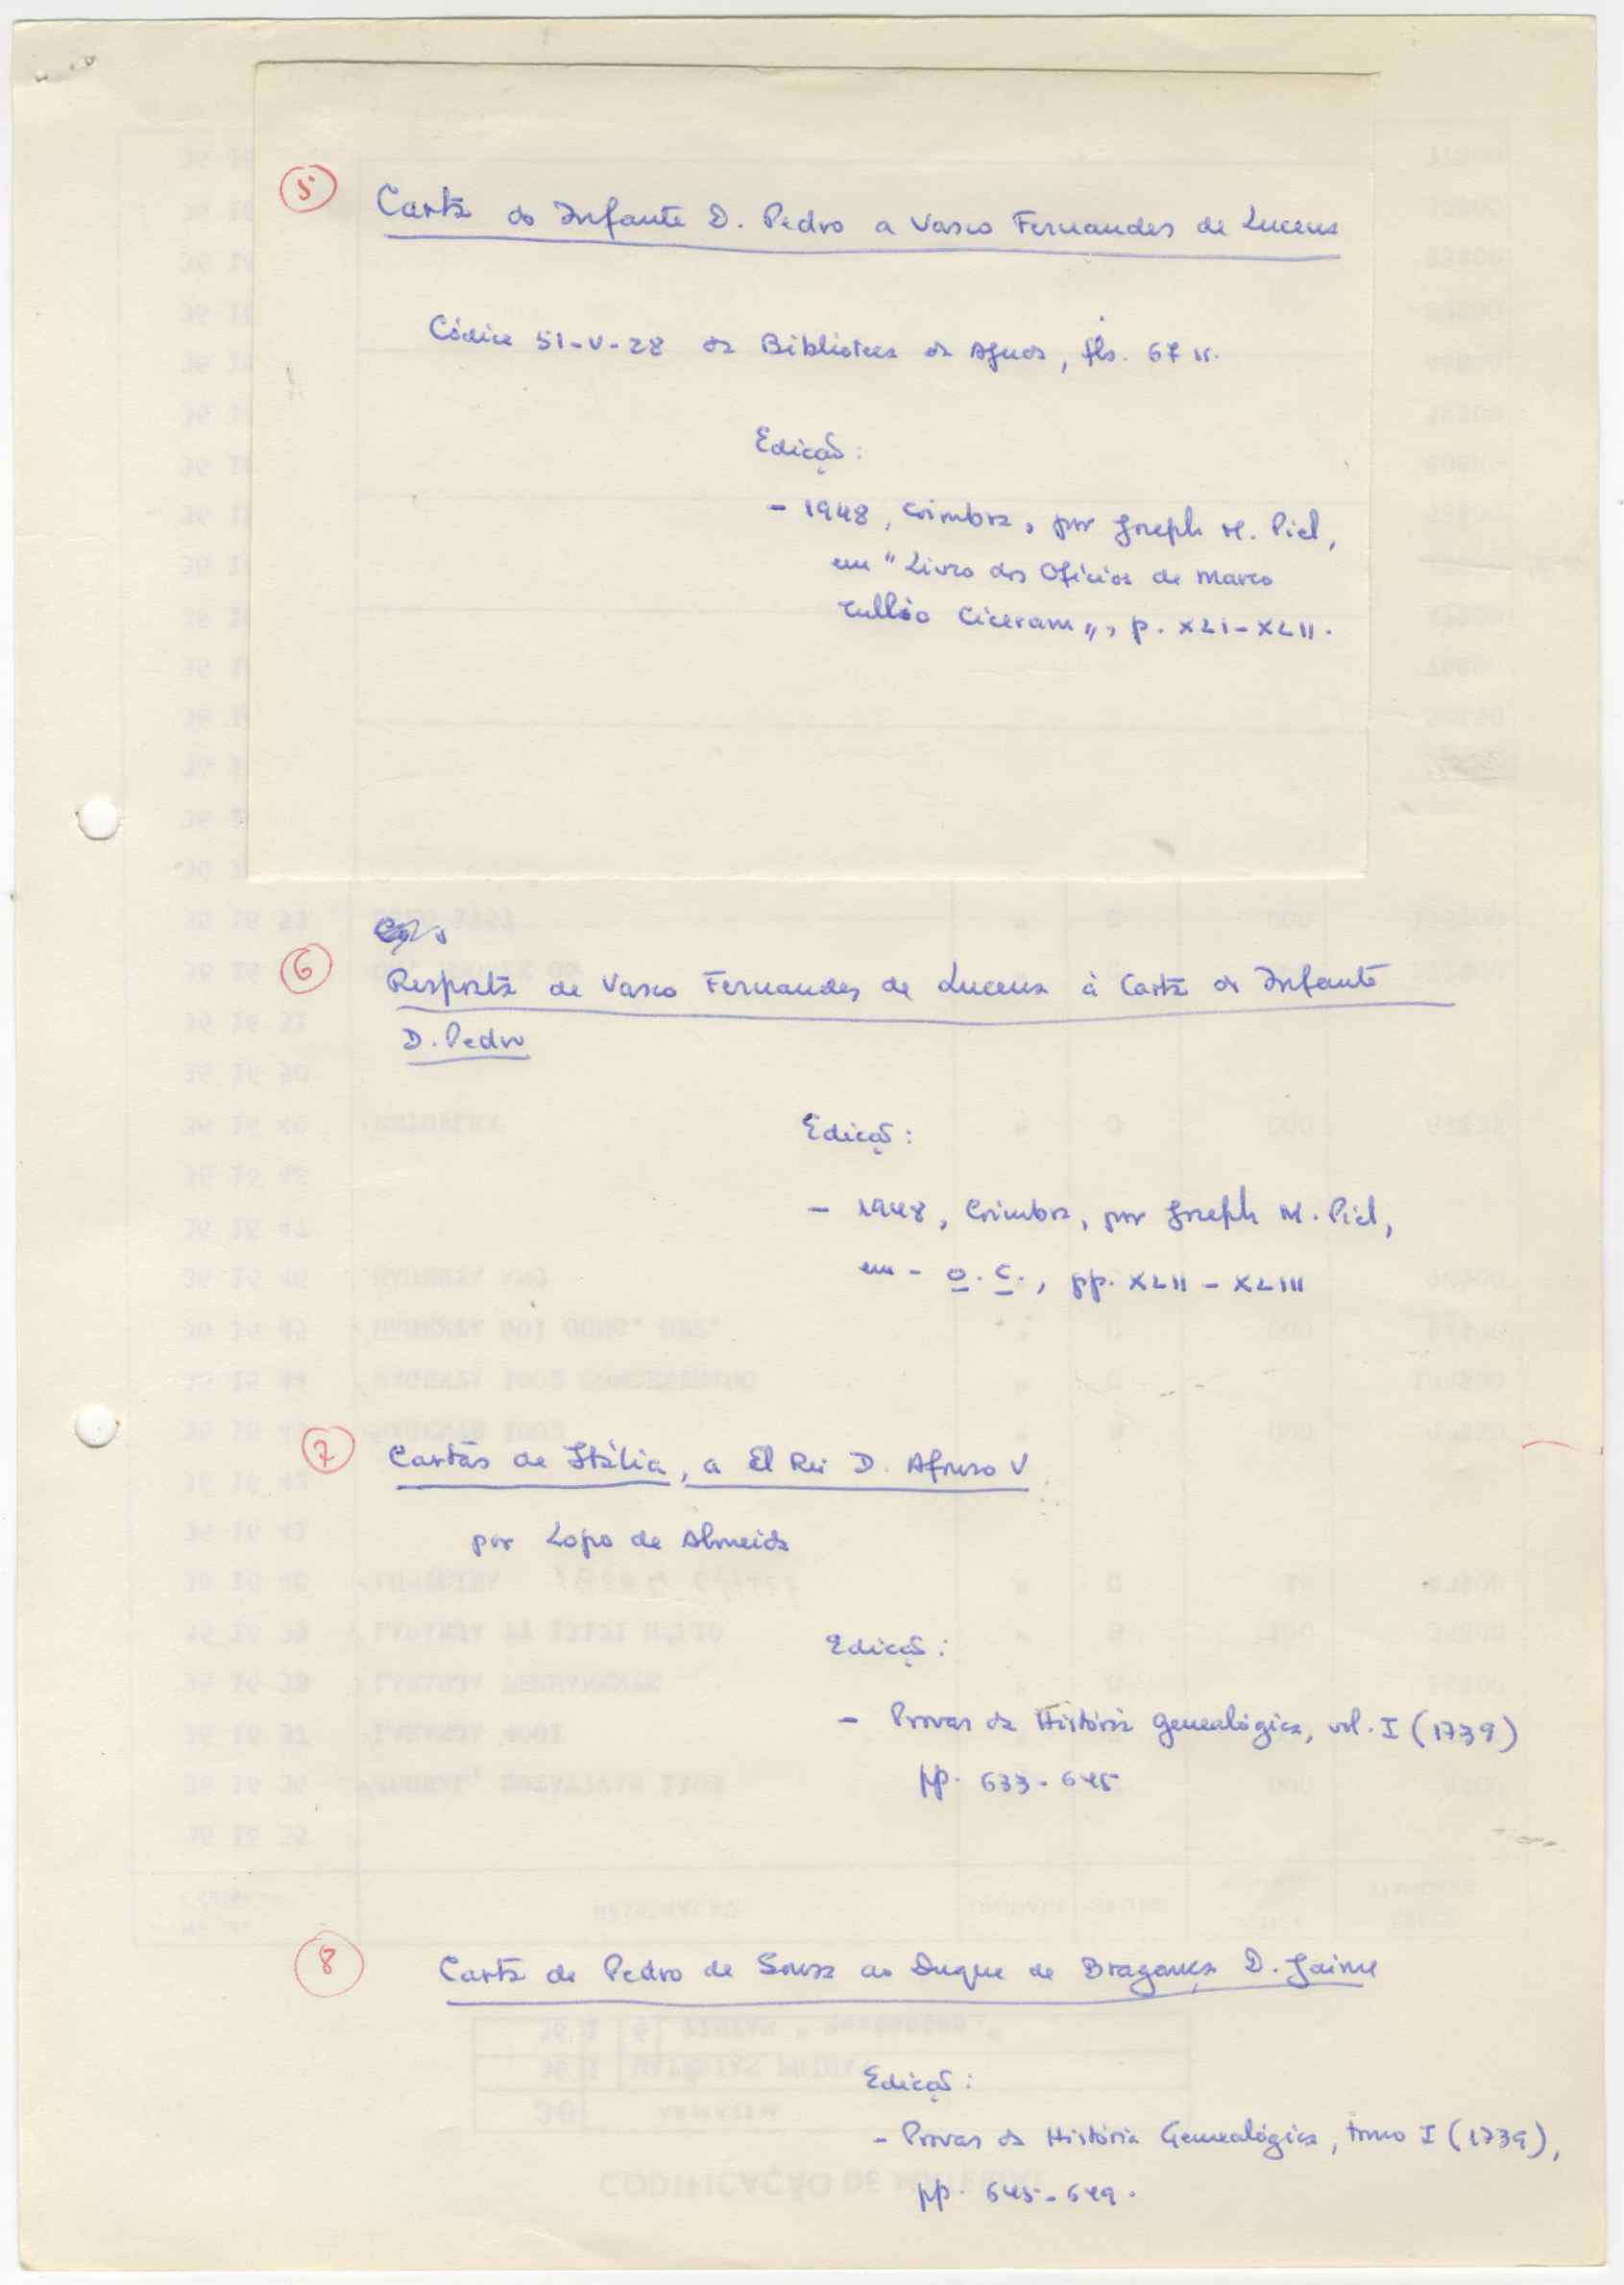 5
Carta do Infante D. Pedro a Vasco Fernandes de Lucena
Códice 51-V-28 da Biblioteca da Ajuda, fls. 67 v.
Edição:
- 1948, Coimbra, por Joseph M. Piel,
em "Livro dos Ofícios de Marco
Tullio Ciceram", p. XLI-XLII.
6
Resposta de Vasco Fernandes de Lucena à Carta do Infante
D. Pedro
Edição:
- 1948, Coimbra, por Joseph M. Piel,
em - o. c., pp. XLII - XLIII
7
Cartas de Itália, a El Rei D. Afonso V
por Lopo de Almeida
Edição:
- Provas da História Genealógica, vol. I (1739)
pp. 633-645
8
Carta de Pedro de Sousa ao Duque de Bragança D. Jaime
Edição:
- Provas da História Genealógica, tomo I (1739),
pp. 645-649.
CODIFICAÇÃO DE